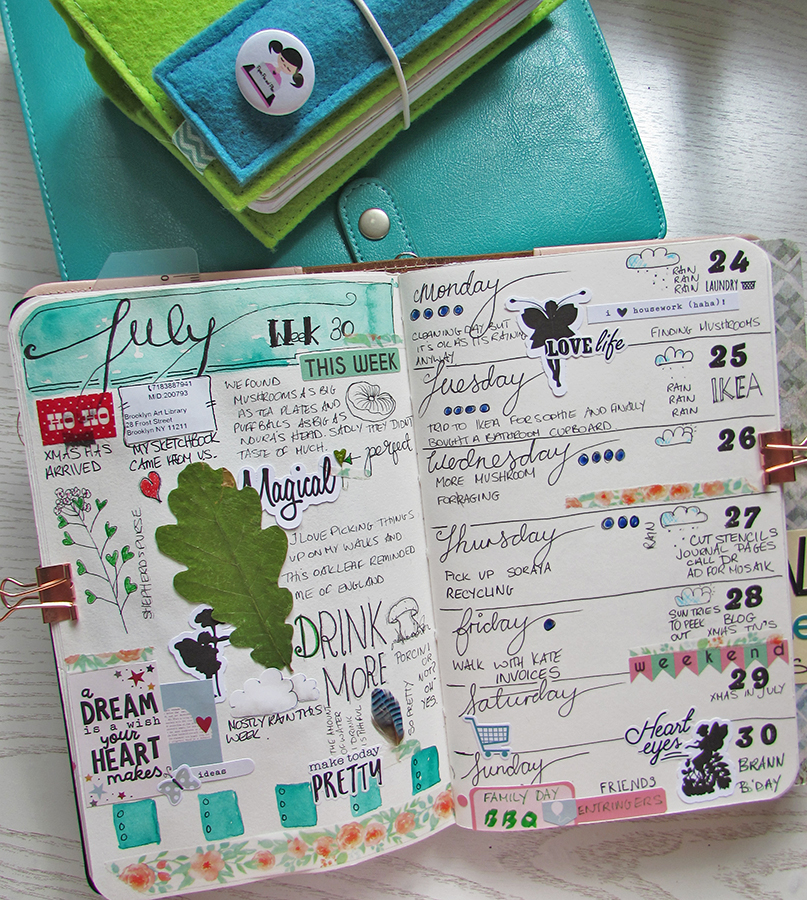 July
Week 30
THIS WEEK
HO HO
XMAS HAS
ARRIVED
(7183887941
MID 200793
Brooklyn Art Library
28 Frost Street
Brooklyn NY 11211
MY SKETCHBOOK
CAME FROM US.
WE FOUND
MUSHROOMS AS BIG
AS TEA PLATES AND
PUFF BALLS AS BIG AS
NOURA'S HEAD. SADLY THEY DIDN'T
TASTE OF MUCH.
perfect
Magical
I LOVE PICKING THINGS
UP ON MY WALKS AND
THIS OAK LEAF REMINDED
ME OF ENGLAND
SHEPHERDS PURSE
DRINK
MORE
THE AMOUNT
OF WATER
I DRINK
IS PITIFUL
PORCINI
OR
NOT?
OH
YES.
SO PRETTY
a
DREAM
is a wish
your
HEART
makes
ideas
MOSTLY RAIN THIS
WEEK.
make today
PRETTY
Monday
24
RAIN
RAIN
RAIN
LAUNDRY
CLEANING DAY BUT
IT'S OK AS ITS RAINING
ANYWAY
LOVE life
i housework (haha)!
FINDING MUSHROOMS
Tuesday
25
RAIN
RAIN
RAIN
IKEA
TRIP TO IKEA FOR SOPHIE AND FINALLY
BOUGHT A BATHROOM CUPBOARD
Wednesday
26
MORE MUSHROOM
FORRAGING
Thursday
27
RAIN
CUT STENCILS
JOURNAL PAGES
CALL DR
AD FOR MOSAIK
PICK UP SORAYA
RECYCLING
friday
28
SUN TRIES
TO PEEK
OUT
BLOG
XMAS TN'S
WALK WITH KATE
INVOICES
weekend
Saturday
29
XMAS IN JULY
Heart
eyes
Sunday
30
BRANN
B.DAY
FAMILY DAY
BBQ
FRIENDS
ENTRINGERS